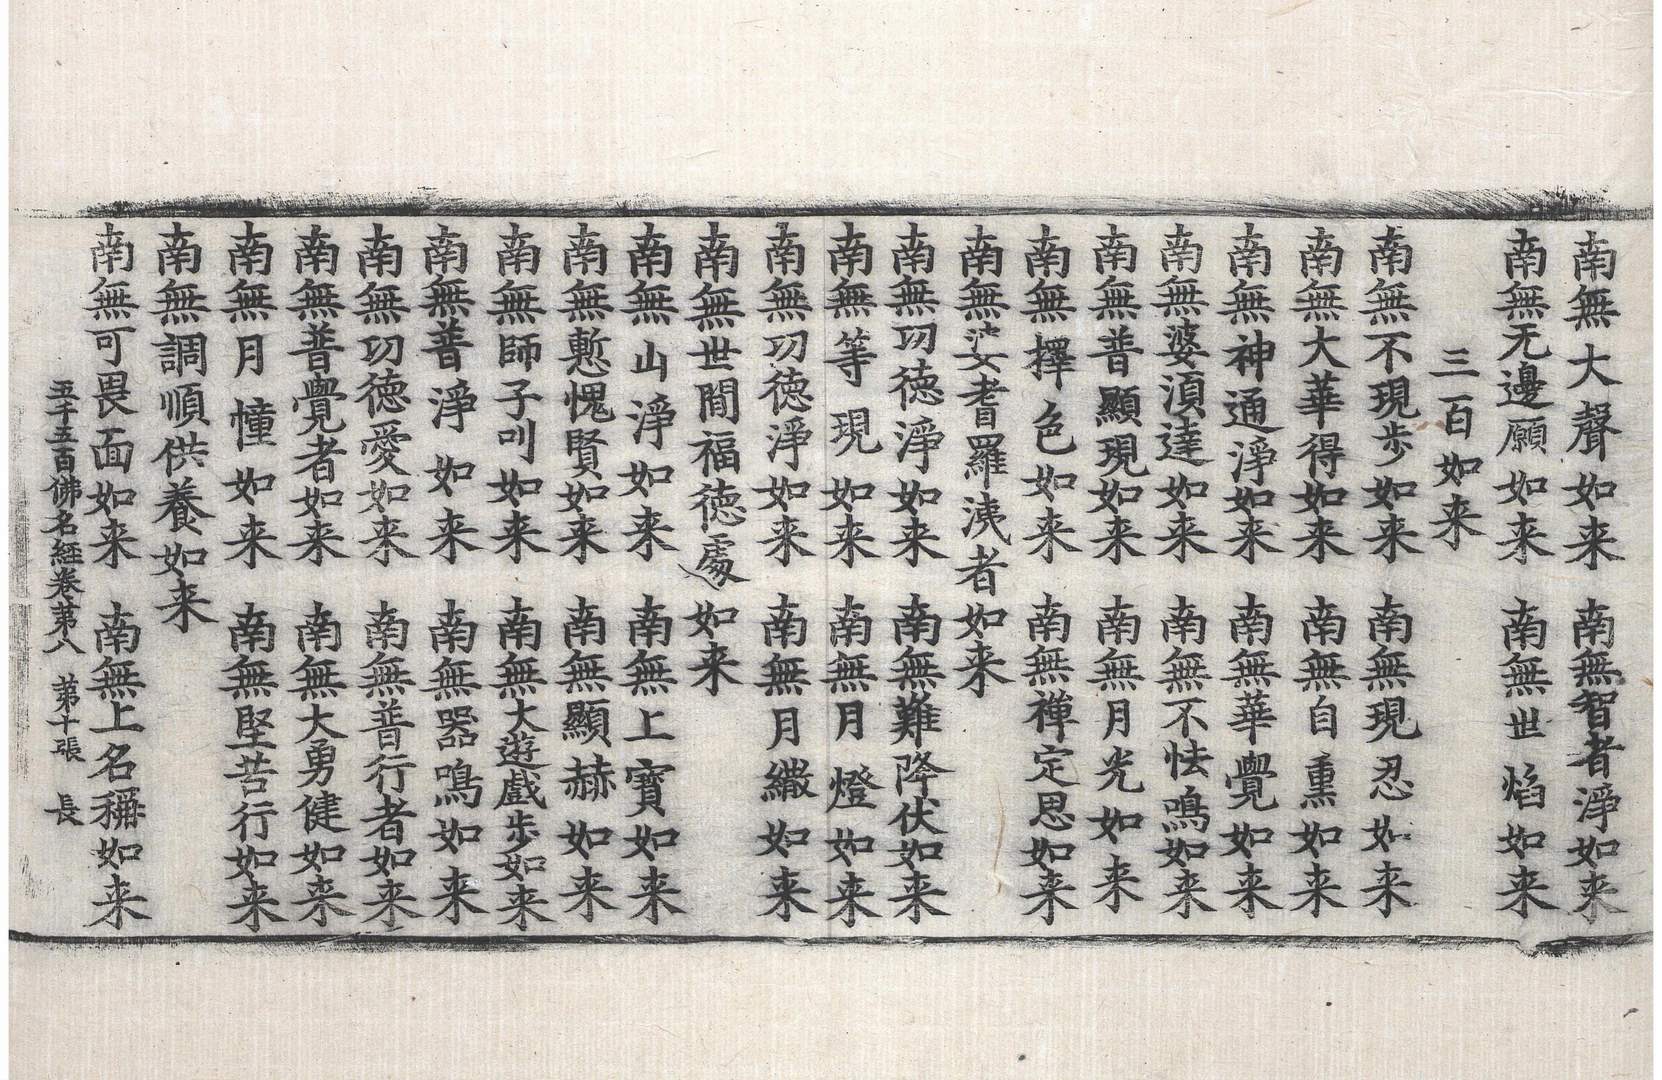 南無大聲如来　南無智者淨如来
南無无邊願如来　南無世焰如来
三百如来
南無不現步如来　南無現忍如来
南無大華得如来　南無自熏如来
南無神通淨如来　南無華覺如来
南無婆湏達如来　南無不怯鳴如来
南無普顯現如来　南無月光如来
南無擇色如来　南無禅定思如来
南無婆耆羅洟者如来
南無功德淨如来　南無難降伏如来
南無等現如来　南無月燈如来
南無功德淨如来　南無月繖如来
南無世間福德處如来
南無山淨如来　南無上寶如来
南無慙愧賢如来　南無顯赫如来
南無師子吼如来　南無大遊戲步如来
南無普淨如来　南無器鳴如来
南無功德愛如来　南無普行者如来
南無普覺者如来　南無大勇健如来
南無月幢如来　南無堅苦行如来
南無調順供養如来
南無可畏面如来　南無上名稱如来
五千五百佛名経卷苐八　苐十張　長